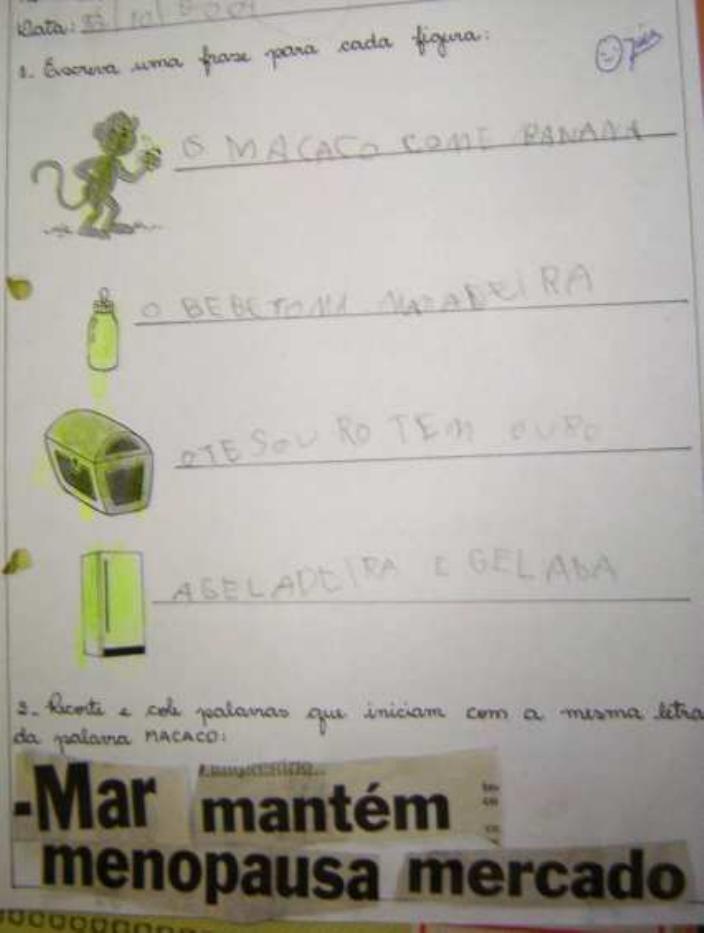 Data:
1. Escreva uma frase para cada figura:
O MACACO COME BANANA
O BEBE TOMA MAMADEIRA
OTESOURO TEM OURO
AGELADEIRA E GELADA
2. Recorte e cole palavras que iniciam com a mesma letra
da palavra MACACO:
-Mar mantém
menopausa mercado